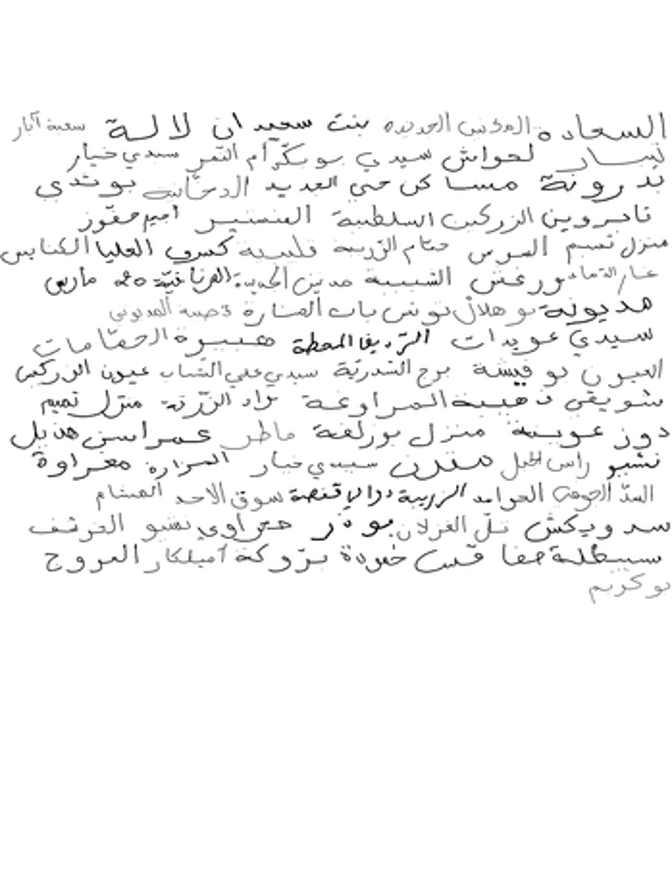 السعادة المؤنس الجديدة بنت سعيدان لالة سعبة آبار
نيسان لحواش سيدي بوبكر أم التمر سيدي خيار
بدرونة مساكن حي الحديد الدخانية بوندي
تاجروين الزركين السلطنية المنستير حفوز
منزل تميم السرس حمام الزريبة قليبية كسرى العليا الكنايس
ورغش الشبيبة مدنين الجديدة الفرناغية 20 مارس
مديونة بوهلال تونس باب المنارة المديوني
سيدي عويدات الرديف المحطة هبيرة الحمامات
العيون بوفيشة برج السدرية سيدي علي الشباب عيون الزركين
شويقي ذهيبة المراوغة رواد الزرقة منزل تميم
دوز عوينة منزل بورلفة ماطر عمراسن هذيل
نشبو راس الجبل منزن سيدي خيار المزارة مغراوة
السد الجوفي الحوامد الزريبة قفصة سوق الاحد
سدويكش تل الغزلان بوذر حمراوي نشبو الخرشف
سبيطلة جفا قبس خمودة بروكة أميلكار المروج
بوكريم